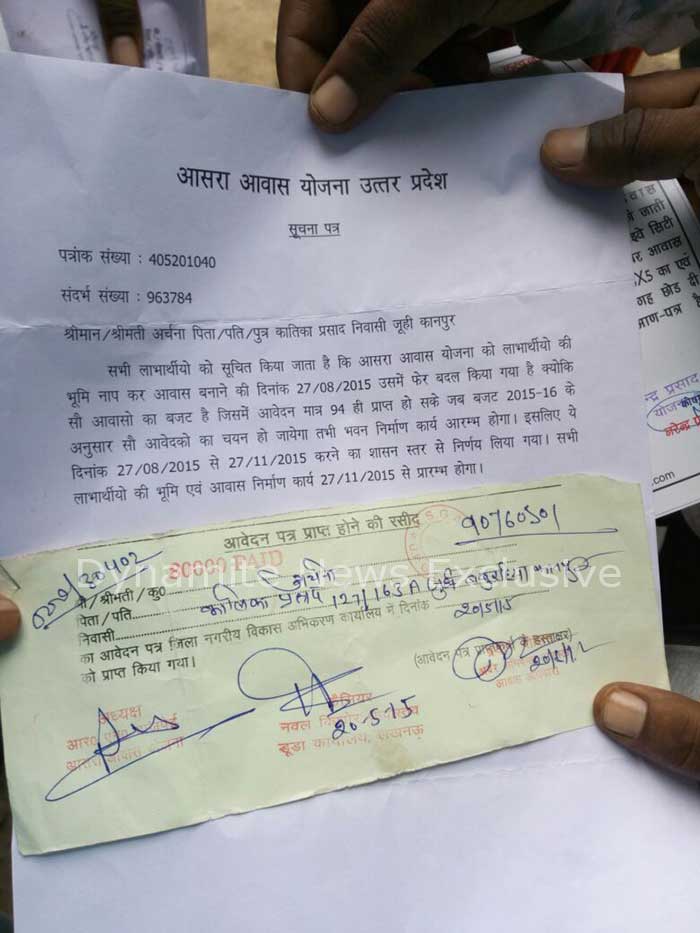 आसरा आवास योजना उत्तर प्रदेश
सूचना पत्र
पत्रांक संख्या : 405201040
संदर्भ संख्या : 963784
श्रीमान/श्रीमती अर्चना पिता/पति/पुत्र कातिका प्रसाद निवासी जूही कानपुर
सभी लाभार्थीयो को सूचित किया जाता है कि आसरा आवास योजना को लाभार्थीयो की
भूमि नाप कर आवास बनाने की दिनांक 27/08/2015 उसमें फेर बदल किया गया है क्योकि
सौ आवासो का बजट है जिसमें आवेदन मात्र 94 ही प्राप्त हो सके जब बजट 2015-16 के
अनुसार सौ आवेदको का चयन हो जायेगा तभी भवन निर्माण कार्य आरम्भ होगा। इसलिए ये
दिनांक 27/08/2015 से 27/11/2015 करने का शासन स्तर से निर्णय लिया गया। सभी
लाभार्थीयो की भूमि एवं आवास निर्माण कार्य 27/11/2015 से प्रारम्भ होगा।
आवेदन पत्र प्राप्त होने की रसीद
90760501
30000 PAID
श्री/श्रीमती/कु0 अर्चना
पिता/पति कालिका प्रसाद 127/163 A जूही
निवासी
का आवेदन पत्र जिला नगरीय विकास अभिकरण कार्यालय में दिनांक 20/5/15
को प्राप्त किया गया।
(आवेदन पत्र प्राप्तकर्ता के हस्ताक्षर)
अध्यक्ष
आसरा आवास योजना
कैशियर
नवल
सूडा कार्यालय, लखनऊ
20-5-15
Dynamite News Exclusive
आवास
जाती
सिटी
आवास
X5 का एवं
गह छोड दी
प्रसाद
योजना
.com